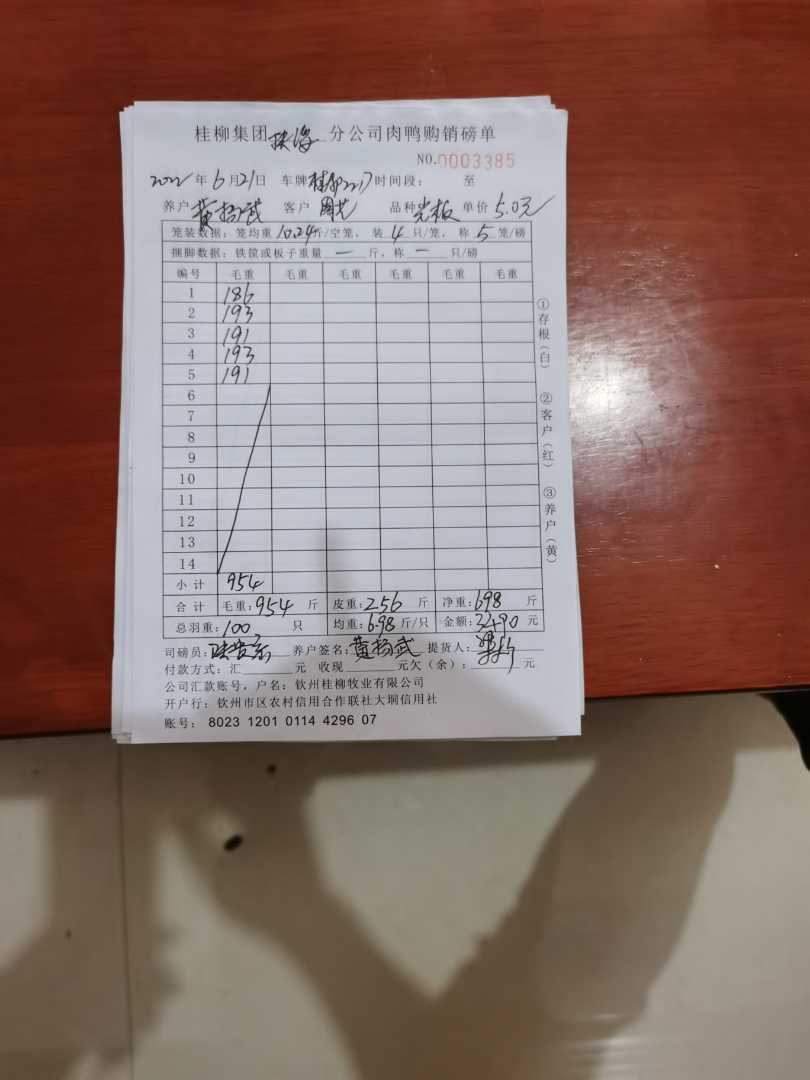 桂柳集团 分公司肉鸭购销磅单
NO.0003385
2022年6月21日 车牌 2217 时间段： 至
养户 黄扬武 客户 品种 光板 单价 5.0元
笼装数据：笼均重 10.24 斤/空笼，装 4 只/笼，称 5 笼/磅
捆脚数据：铁筐或板子重量 — 斤，称 — 只/磅
编号 毛重 毛重 毛重 毛重 毛重 毛重
1 186
2 193
3 191
4 193
5 191
6
7
8
9
10
11
12
13
14
小计 954
合计 毛重：954 斤 皮重：256 斤 净重：698 斤
总羽重：100 只 均重：6.98 斤/只 金额：3490 元
司磅员： 养户签名：黄扬武 提货人：
付款方式：汇 元 收现 元欠（余）： 元
公司汇款账号，户名：钦州桂柳牧业有限公司
开户行：钦州市区农村信用合作联社大垌信用社
账号： 8023 1201 0114 4296 07
①存根（白）
②客户（红）
③养户（黄）